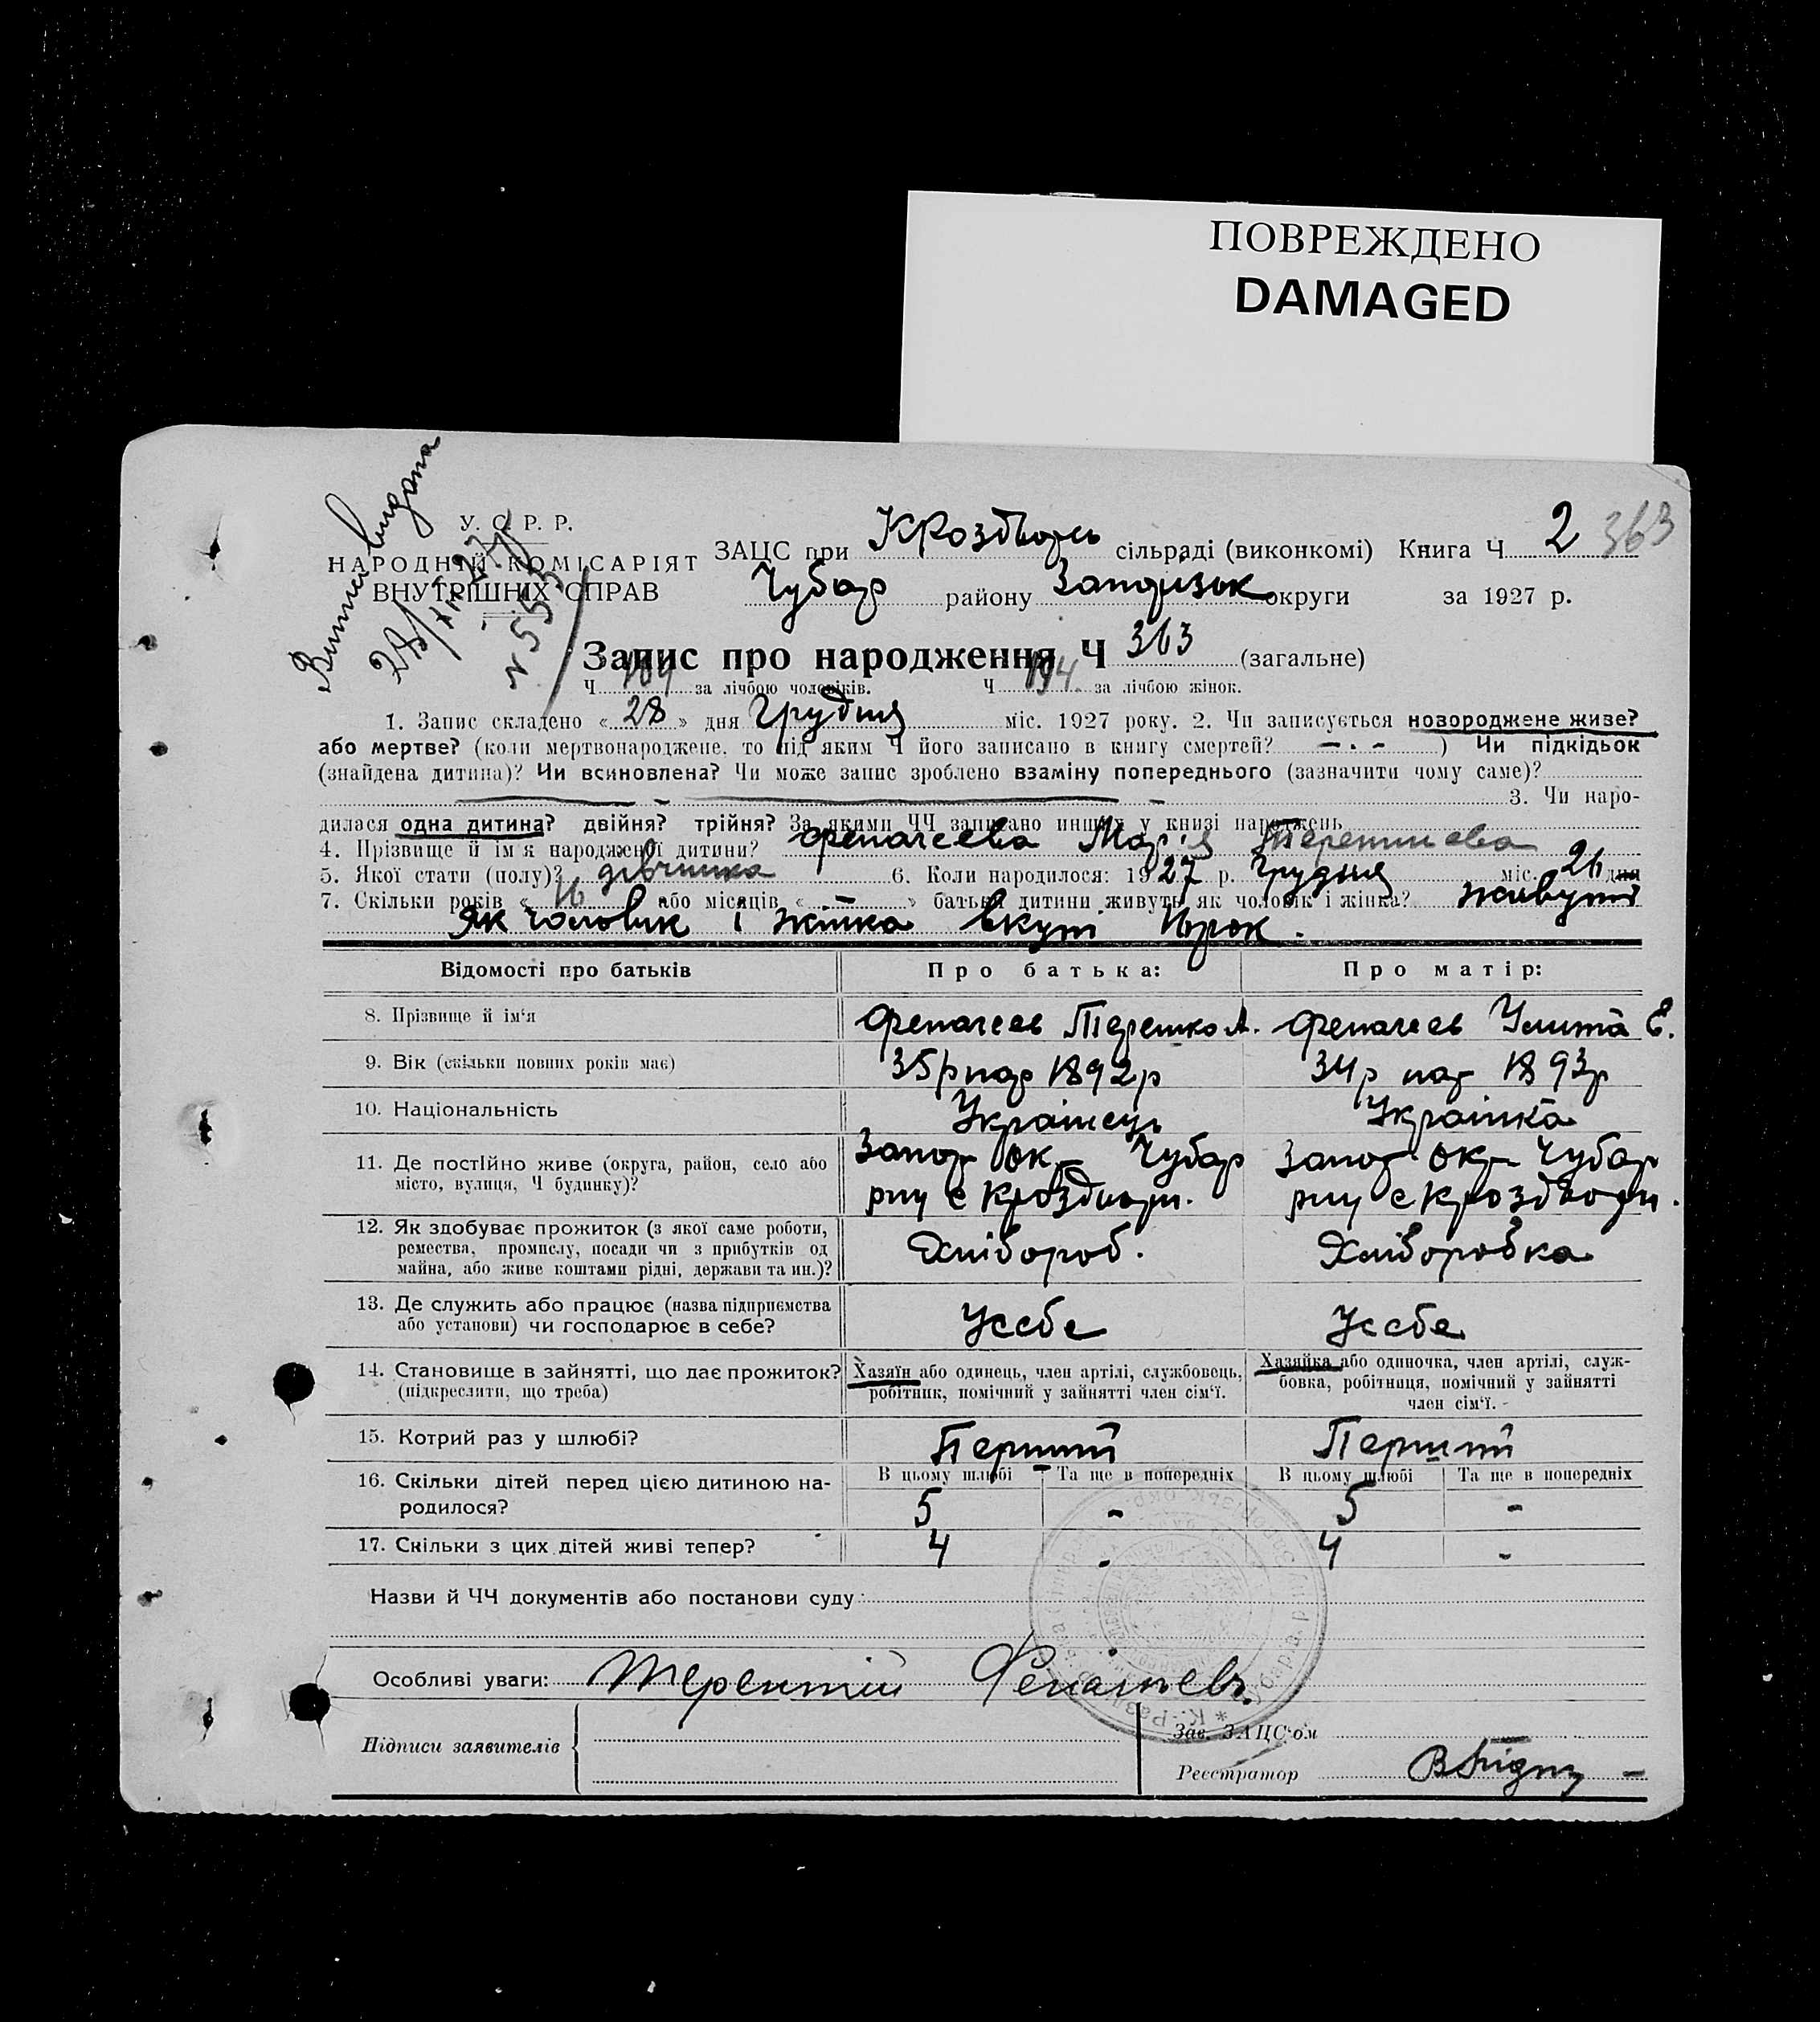 ПОВРЕЖДЕНО
DAMAGED
Виписа видана
28/XII 27
N 553
У. С. Р. Р.
НАРОДНІЙ КОМІСАРІЯТ
ВНУТРІШНІХ СПРАВ
ЗАЦС при КРоздворь сільраді (виконкомі) Книга Ч 2 363
Чубар району Запорізьк округи за 1927 р.
Запис про народження Ч 363 (загальне)
Ч 169 за лічбою чоловіків. Ч 194 за лічбою жінок.
1. Запис складено « 28 » дня Грудня міс. 1927 року. 2. Чи записується новороджене живе?
або мертве? (коли мертвонароджене, то під яким Ч його записано в книгу смертей? — . - ) Чи підкідьок
(знайдена дитина)? Чи всиновлена? Чи може запис зроблено взаміну попереднього (зазначити чому саме)?
3. Чи наро-
дилася одна дитина? двійня? трійня? За якими ЧЧ записано инших у книзі народжень
4. Прізвище й ім'я народженої дитини? Фепачеева Марія Терентиева
5. Якої стати (полу)? дівчинка 6. Коли народилося: 1927 р. Грудня міс. 26 дня
7. Скільки років « 16 або місяців « — » батьки дитини живуть як чоловік і жінка? живуть
Як чоловик і жінка вкупі 16 рок.
Відомості про батьків
Про батька:
Про матір:
8. Прізвище й ім'я
Фепачеев Терешко А.
Фепачеев Улита Е.
9. Вік (скільки повних років має)
35р нар 1892р
34р нар 1893р
10. Національність
Українець
Українка
11. Де постійно живе (округа, район, село або
місто, вулиця, Ч будинку)?
Запор ок. Чубар
рну с Кроздвори.
Запор ок. Чубар
рну с Кроздвори.
12. Як здобуває прожиток (з якої саме роботи,
ремества, промислу, посади чи з прибутків од
майна, або живе коштами рідні, держави та ин.)?
Хлібороб.
Хліборобка
13. Де служить або працює (назва підприємства
або установи) чи господарює в себе?
Усебе
Усебе
14. Становище в зайнятті, що дає прожиток?
(підкреслити, що треба)
Хазяїн або одинець, член артілі, службовець,
робітник, помічний у зайнятті член сім'ї.
Хазяйка або одиночка, член артілі, служ-
бовка, робітниця, помічний у зайнятті
член сім'ї.
15. Котрий раз у шлюбі?
Перший
Перший
16. Скільки дітей перед цією дитиною на-
родилося?
В цьому шлюбі
Та ще в попередніх
В цьому шлюбі
Та ще в попередніх
5 - 5 -
17. Скільки з цих дітей живі тепер?
4 - 4 -
Назви й ЧЧ документів або постанови суду
Особливі уваги: Терентій Фепачевъ
Підписи заявителів
Зав. ЗАЦС'ом
Реєстратор